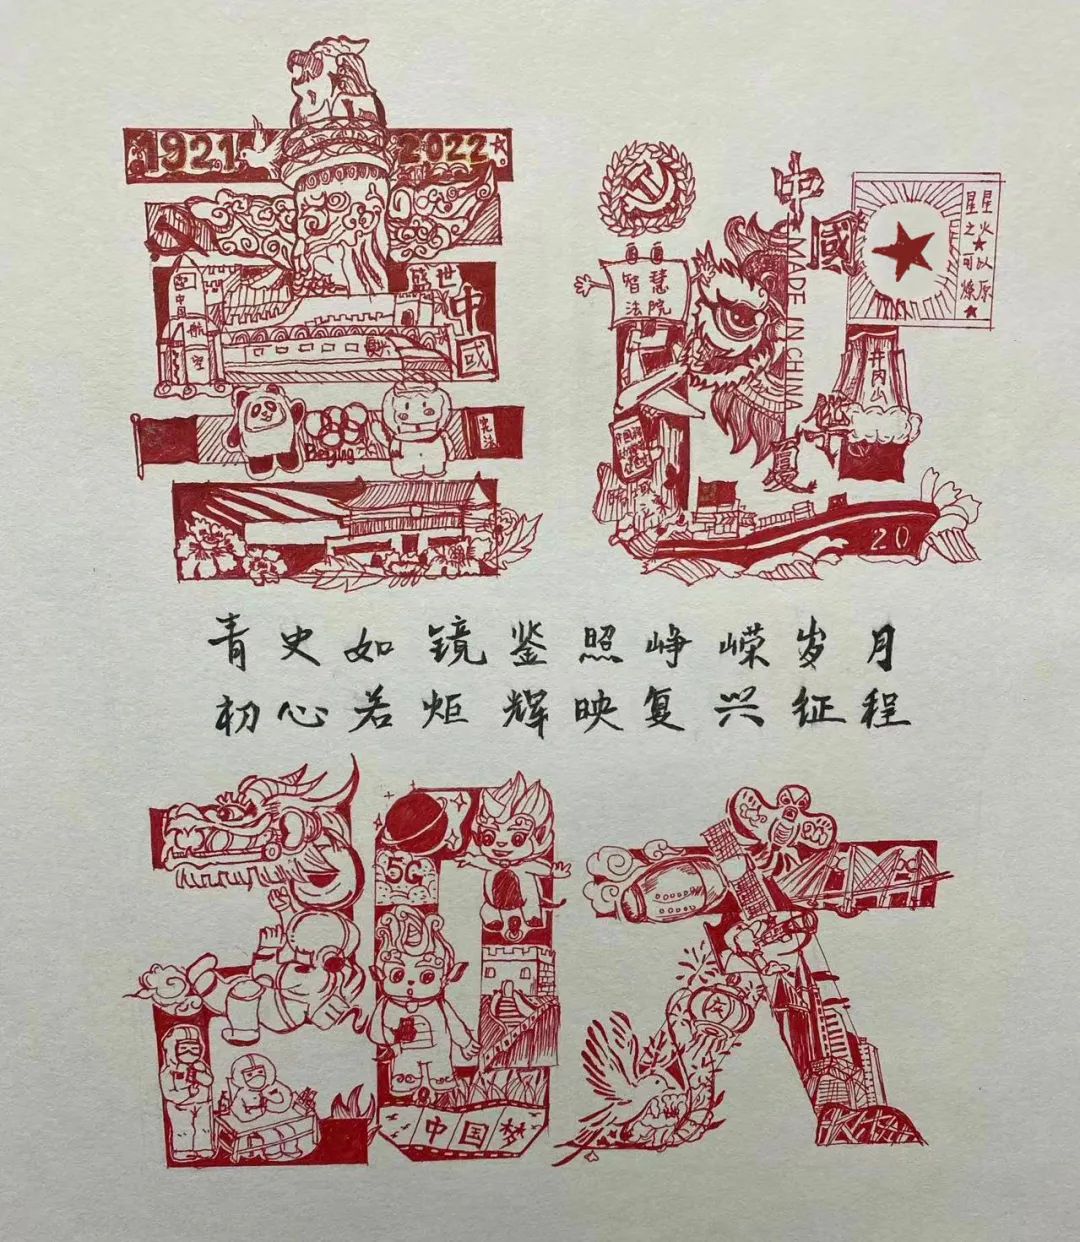 喜迎
1921 2022
盛世
中國
中国航空
Beijing
中國
MADE IN CHINA
星星之火可以燎原
智慧法院
井冈山
20
青史如镜鉴照峥嵘岁月
初心若炬辉映复兴征程
20大
5G
中国梦